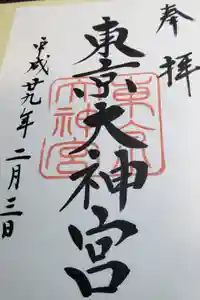 奉拝
東京大神宮
東京大神宮
平成廿九年二月三日